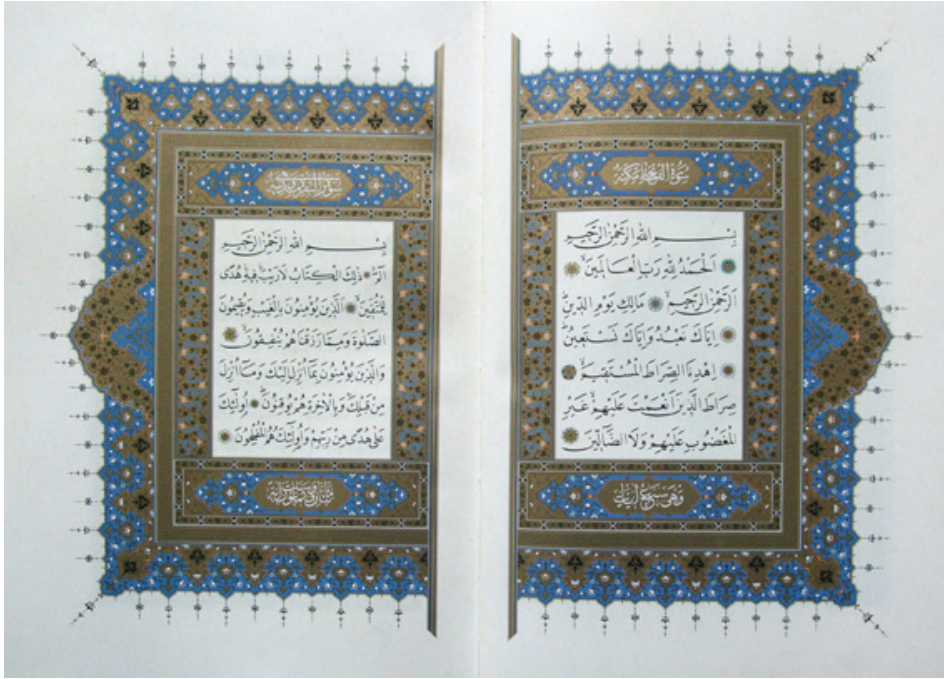 سورة الفاتحة مكية
بسم الله الرحمن الرحيم
الحمد لله رب العالمين
الرحمن الرحيم مالك يوم الدين
اياك نعبد واياك نستعين
اهدنا الصراط المستقيم
صراط الذين انعمت عليهم غير
المغضوب عليهم ولا الضالين
وهي سبع آيات
سورة البقرة مدنية
بسم الله الرحمن الرحيم
الم ذلك الكتاب لا ريب فيه هدى
للمتقين الذين يؤمنون بالغيب ويقيمون
الصلوة ومما رزقناهم ينفقون
والذين يؤمنون بما انزل اليك وما انزل
من قبلك وبالآخرة هم يوقنون اولئك
على هدى من ربهم واولئك هم المفلحون